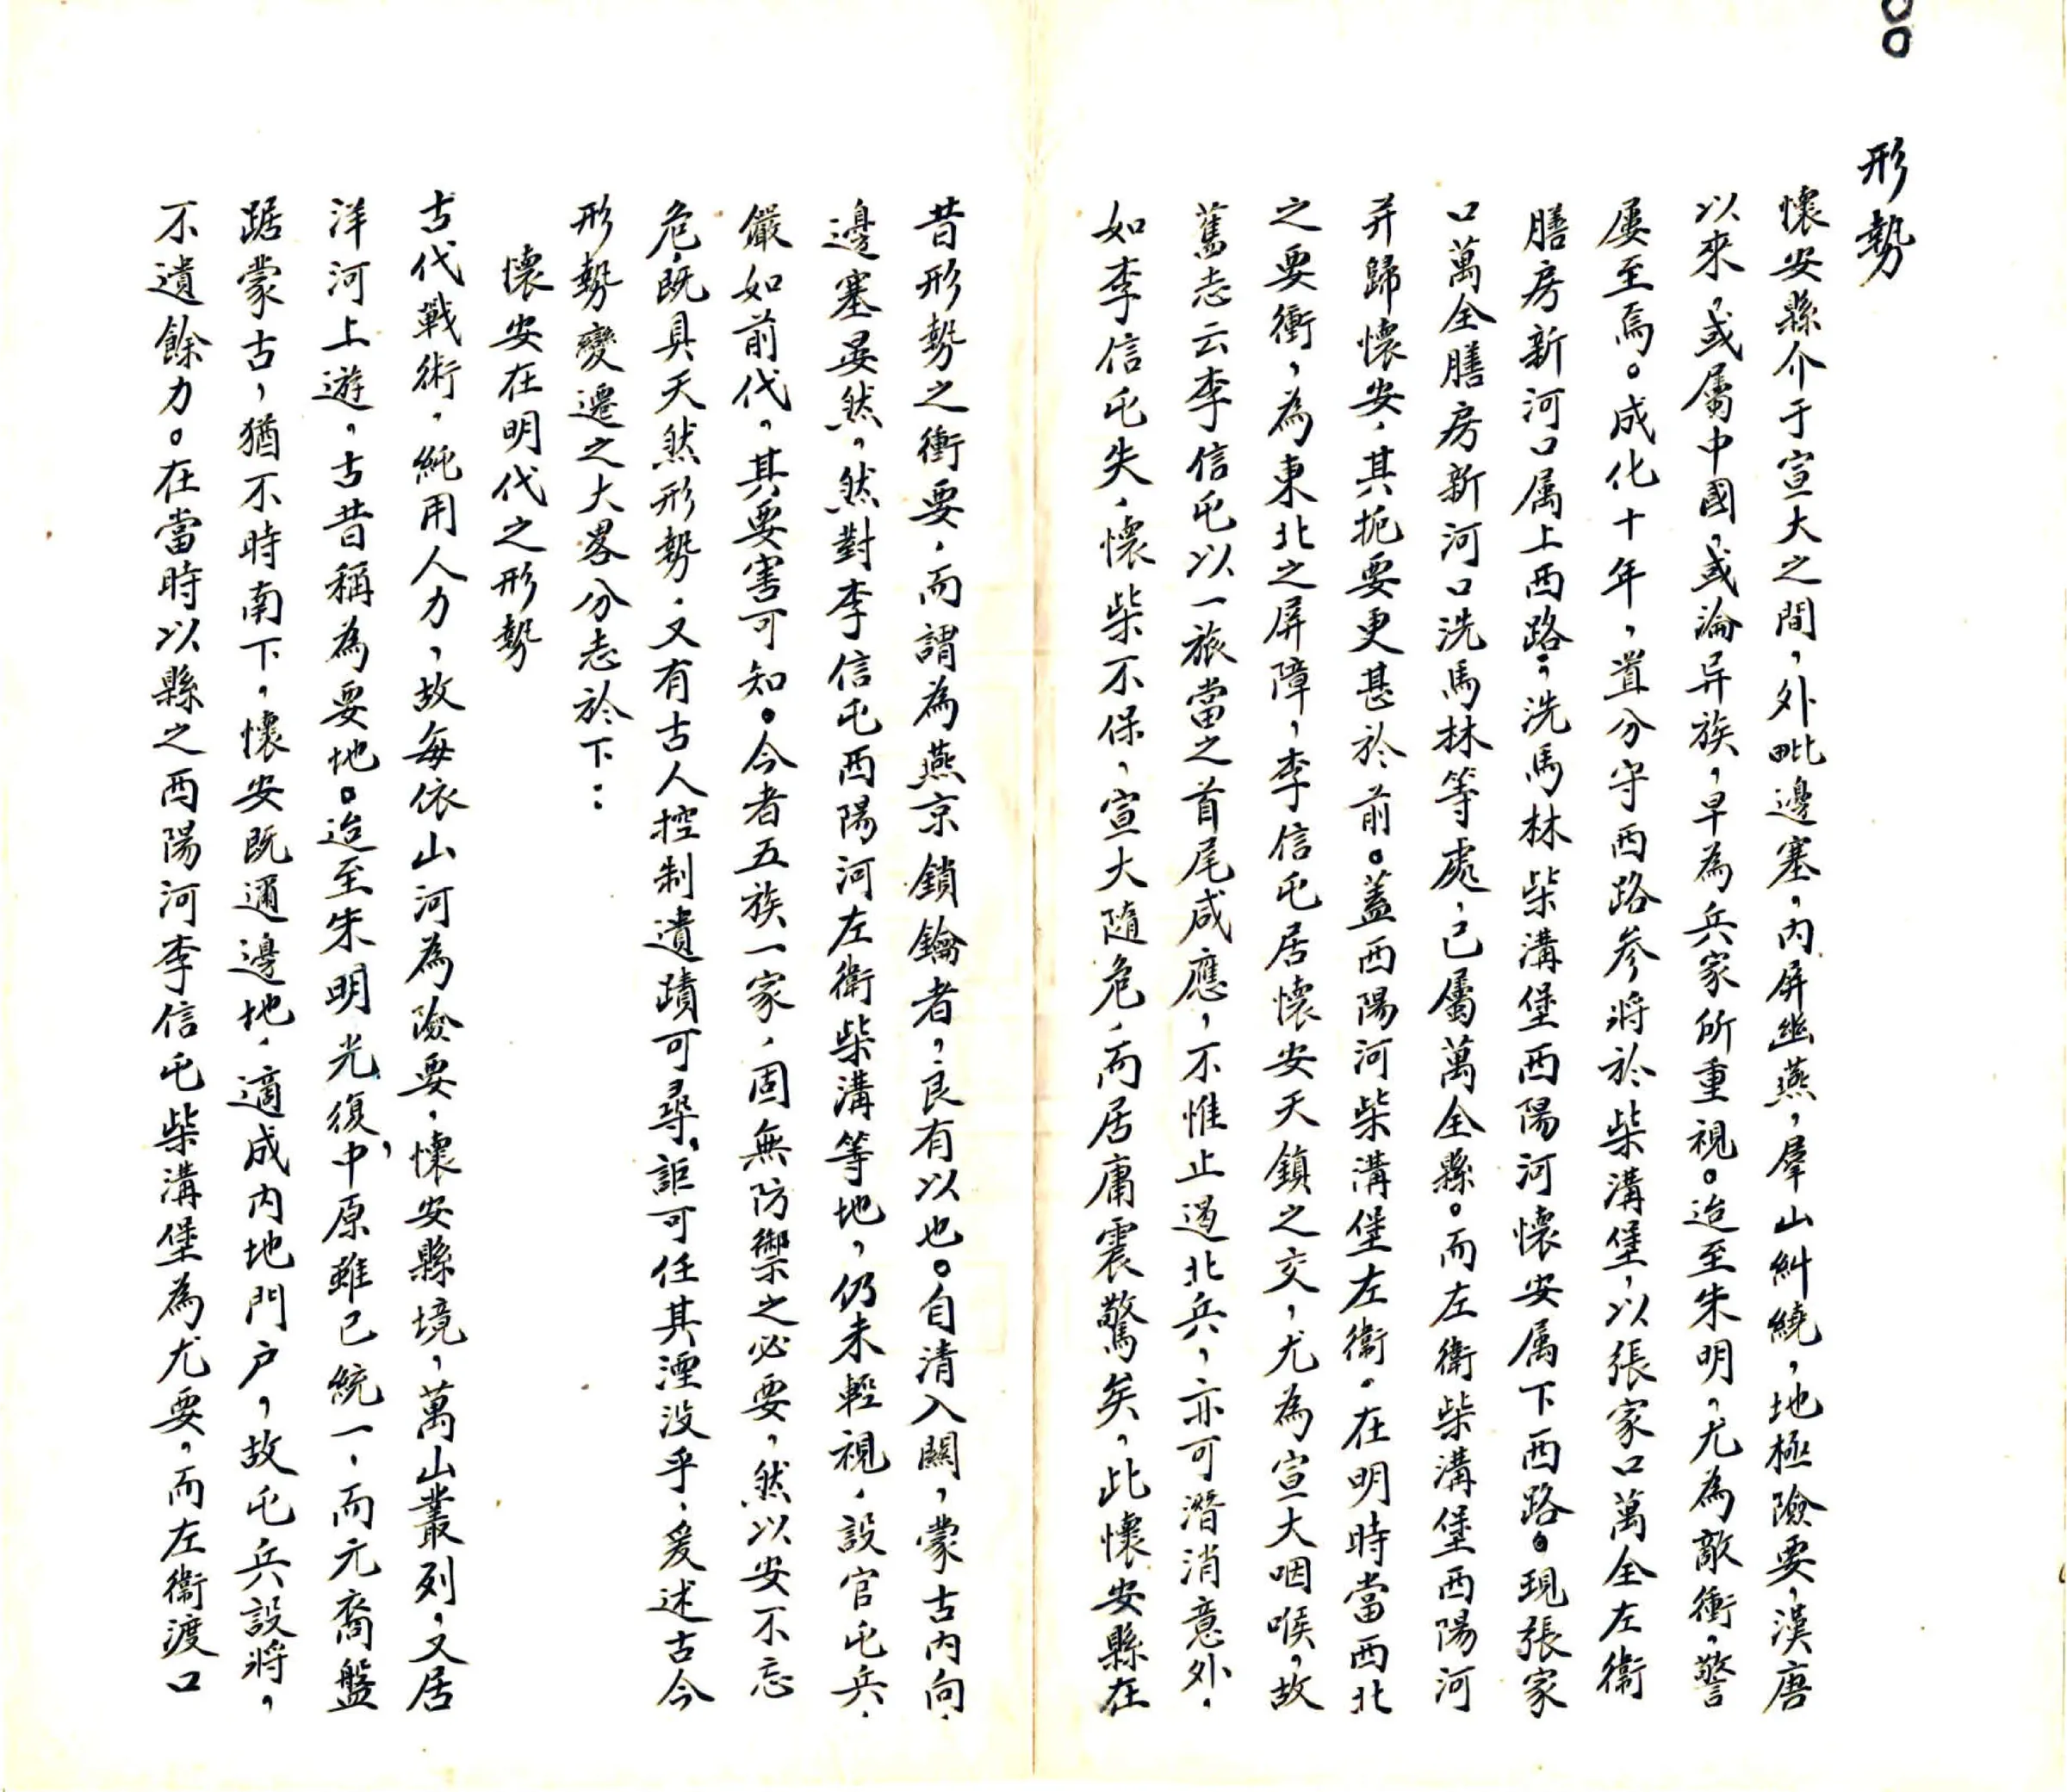 形勢
懷安縣介于宣大之間，外毗邊塞，內屏幽燕，羣山糾繞，地極險要，漢唐
以來，或屬中國，或淪异族，早為兵家所重視。迨至朱明，尤為敵衝，警
屢至焉。成化十年，置分守西路參將於柴溝堡，以張家口萬全左衛
膳房新河口属上西路；洗馬林柴溝堡西陽河懷安属下西路。現張家
口萬全膳房新河口洗馬林等處，已屬萬全縣。而左衛柴溝堡西陽河
并歸懷安，其扼要更甚於前。蓋西陽河柴溝堡左衛，在明時當西北
之要衝，為東北之屏障，李信屯居懷安天鎮之交，尤為宣大咽喉，故
舊志云李信屯以一旅當之首尾咸應，不惟止遏北兵，亦可潛消意外，
如李信屯失，懷柴不保，宣大隨危，而居庸震驚矣，此懷安縣在
昔形勢之衝要，而謂為燕京鎖鑰者，良有以也。自清入關，蒙古內向，
邊塞晏然，然對李信屯西陽河左衛柴溝等地，仍未輕視，設官屯兵，
儼如前代，其要害可知。今者五族一家，固無防禦之必要，然以安不忘
危，既具天然形勢，又有古人控制遺蹟可尋，詎可任其湮没乎，爰述古今
形勢變遷之大畧分志於下：
懷安在明代之形勢
古代戰術，純用人力，故每依山河為險要，懷安縣境，萬山叢列，又居
洋河上遊，古昔稱為要地。迨至朱明光復，中原雖已統一，而元裔盤
踞蒙古，猶不時南下，懷安既邇邊地，適成内地門户，故屯兵設將，
不遺餘力。在當時以縣之西陽河李信屯柴溝堡為尤要，而左衛渡口